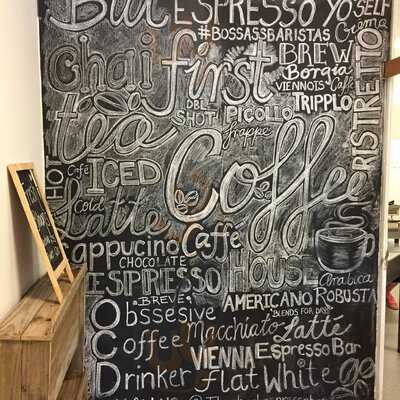 But ESPRESSO YO SELF
#BOSSASSBARISTAS Crema
chai first BREW
Boraia
VIENNOIS Caffe
TRIPPLO
RISTRETTO
tea DBL SHOT PICOLLO
frappe
HOT Cafe ICED Coffee
Cold
Latte
Cappucino Caffe
CHOCOLATE
ESPRESSO HOUSE Arabica
"BREVE" AMERICANO ROBUSTA
Obssesive "BLENDS FOR DAYS"
Coffee Macchiato Latté
VIENNA Espresso Bar
Drinker Flat White